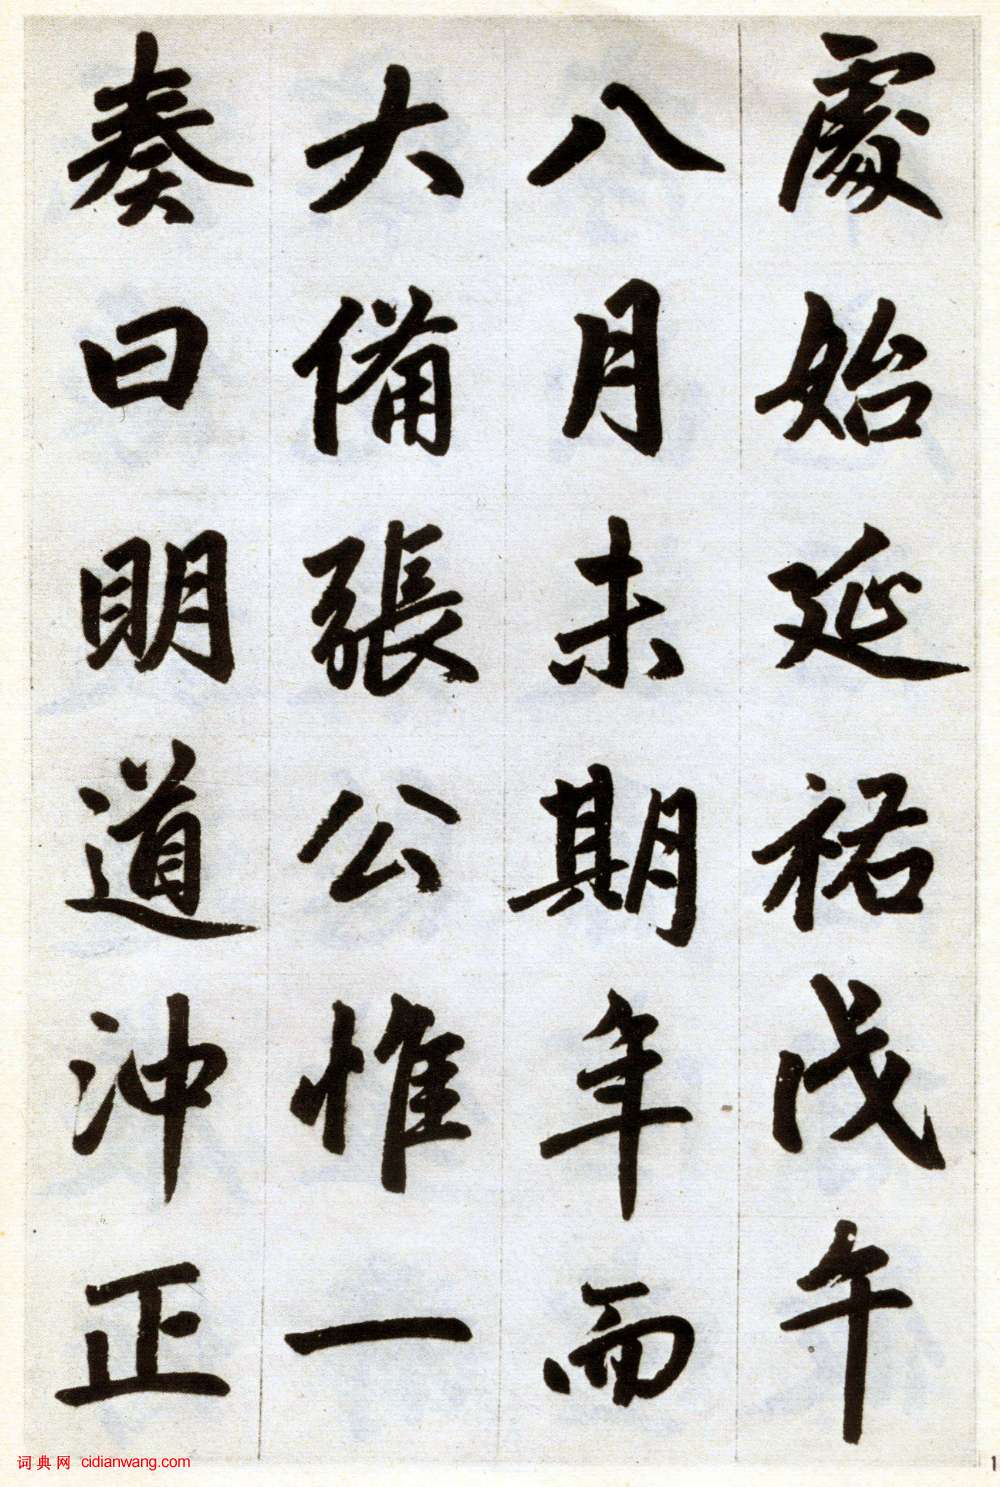 處始延祐戊午
八月未期年而
大備張公惟一
奏曰明道沖正
词典网 cidianwang.com
1